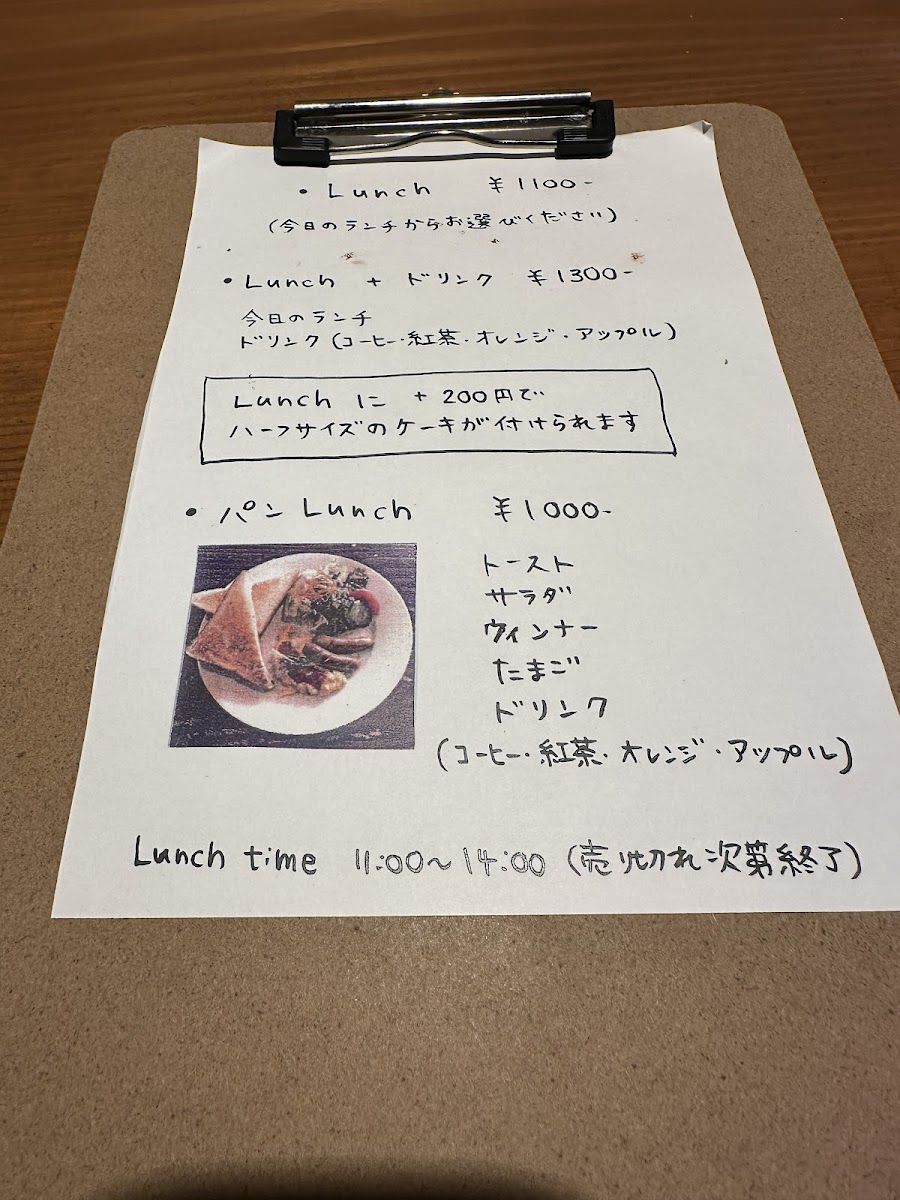 • Lunch ¥1100-
(今日のランチからお選びください)
• Lunch + ドリンク ¥1300-
今日のランチ
ドリンク(コーヒー・紅茶・オレンジ・アップル)
Lunch に + 200円で
ハーフサイズのケーキが付けられます
• パン Lunch ¥1000-
トースト
サラダ
ウィンナー
たまご
ドリンク
(コーヒー・紅茶・オレンジ・アップル)
Lunch time 11:00~14:00 (売り切れ次第終了)